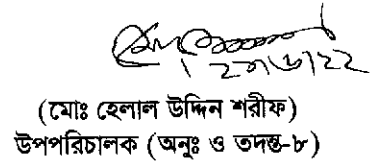 (মোঃ হেলাল উদ্দিন শরীফ)
উপপরিচালক (অনুঃ ও তদন্ত-৮)